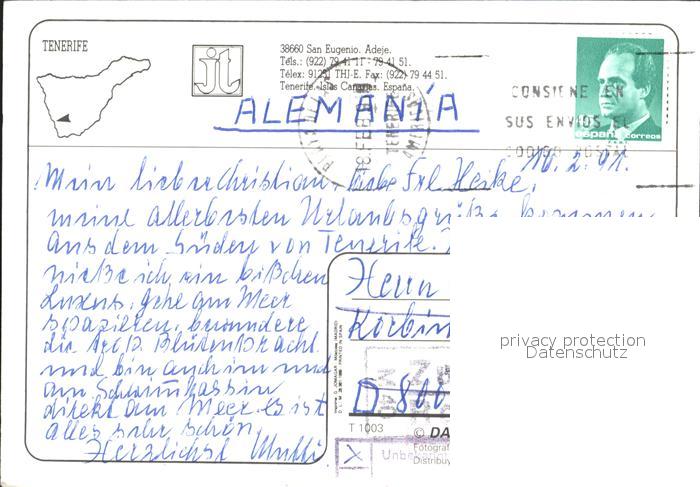 TENERIFE
jt
38660 San Eugenio. Adeje.
Tels.: (922) 79 41 11 - 79 41 51.
Télex: 91251 THJ-E. Fax: (922) 79 44 51.
Tenerife. Islas Canarias. España.
ALEMANÍA
CONSIGNE EN
SUS ENVIOS EL
CODIGO POSTAL
españa correos
16.2.91.
Mein lieber Christian, liebe Frl. Heike,
meine allerbesten Urlaubsgrüße kommen
aus dem Süden von Tenerife.
nieße ich ein bißchen
Luxus, gehe am Meer
spazieren, bewundere
die Blütenpracht
und bin auch im und
am Schwimmbassin
direkt am Meer. es ist
alles sehr schön.
Herzlichst Mutti.
Herrn
Korbin
D 800
T 1003
© DA
Fotograf
Distribuy
privacy protection
Datenschutz